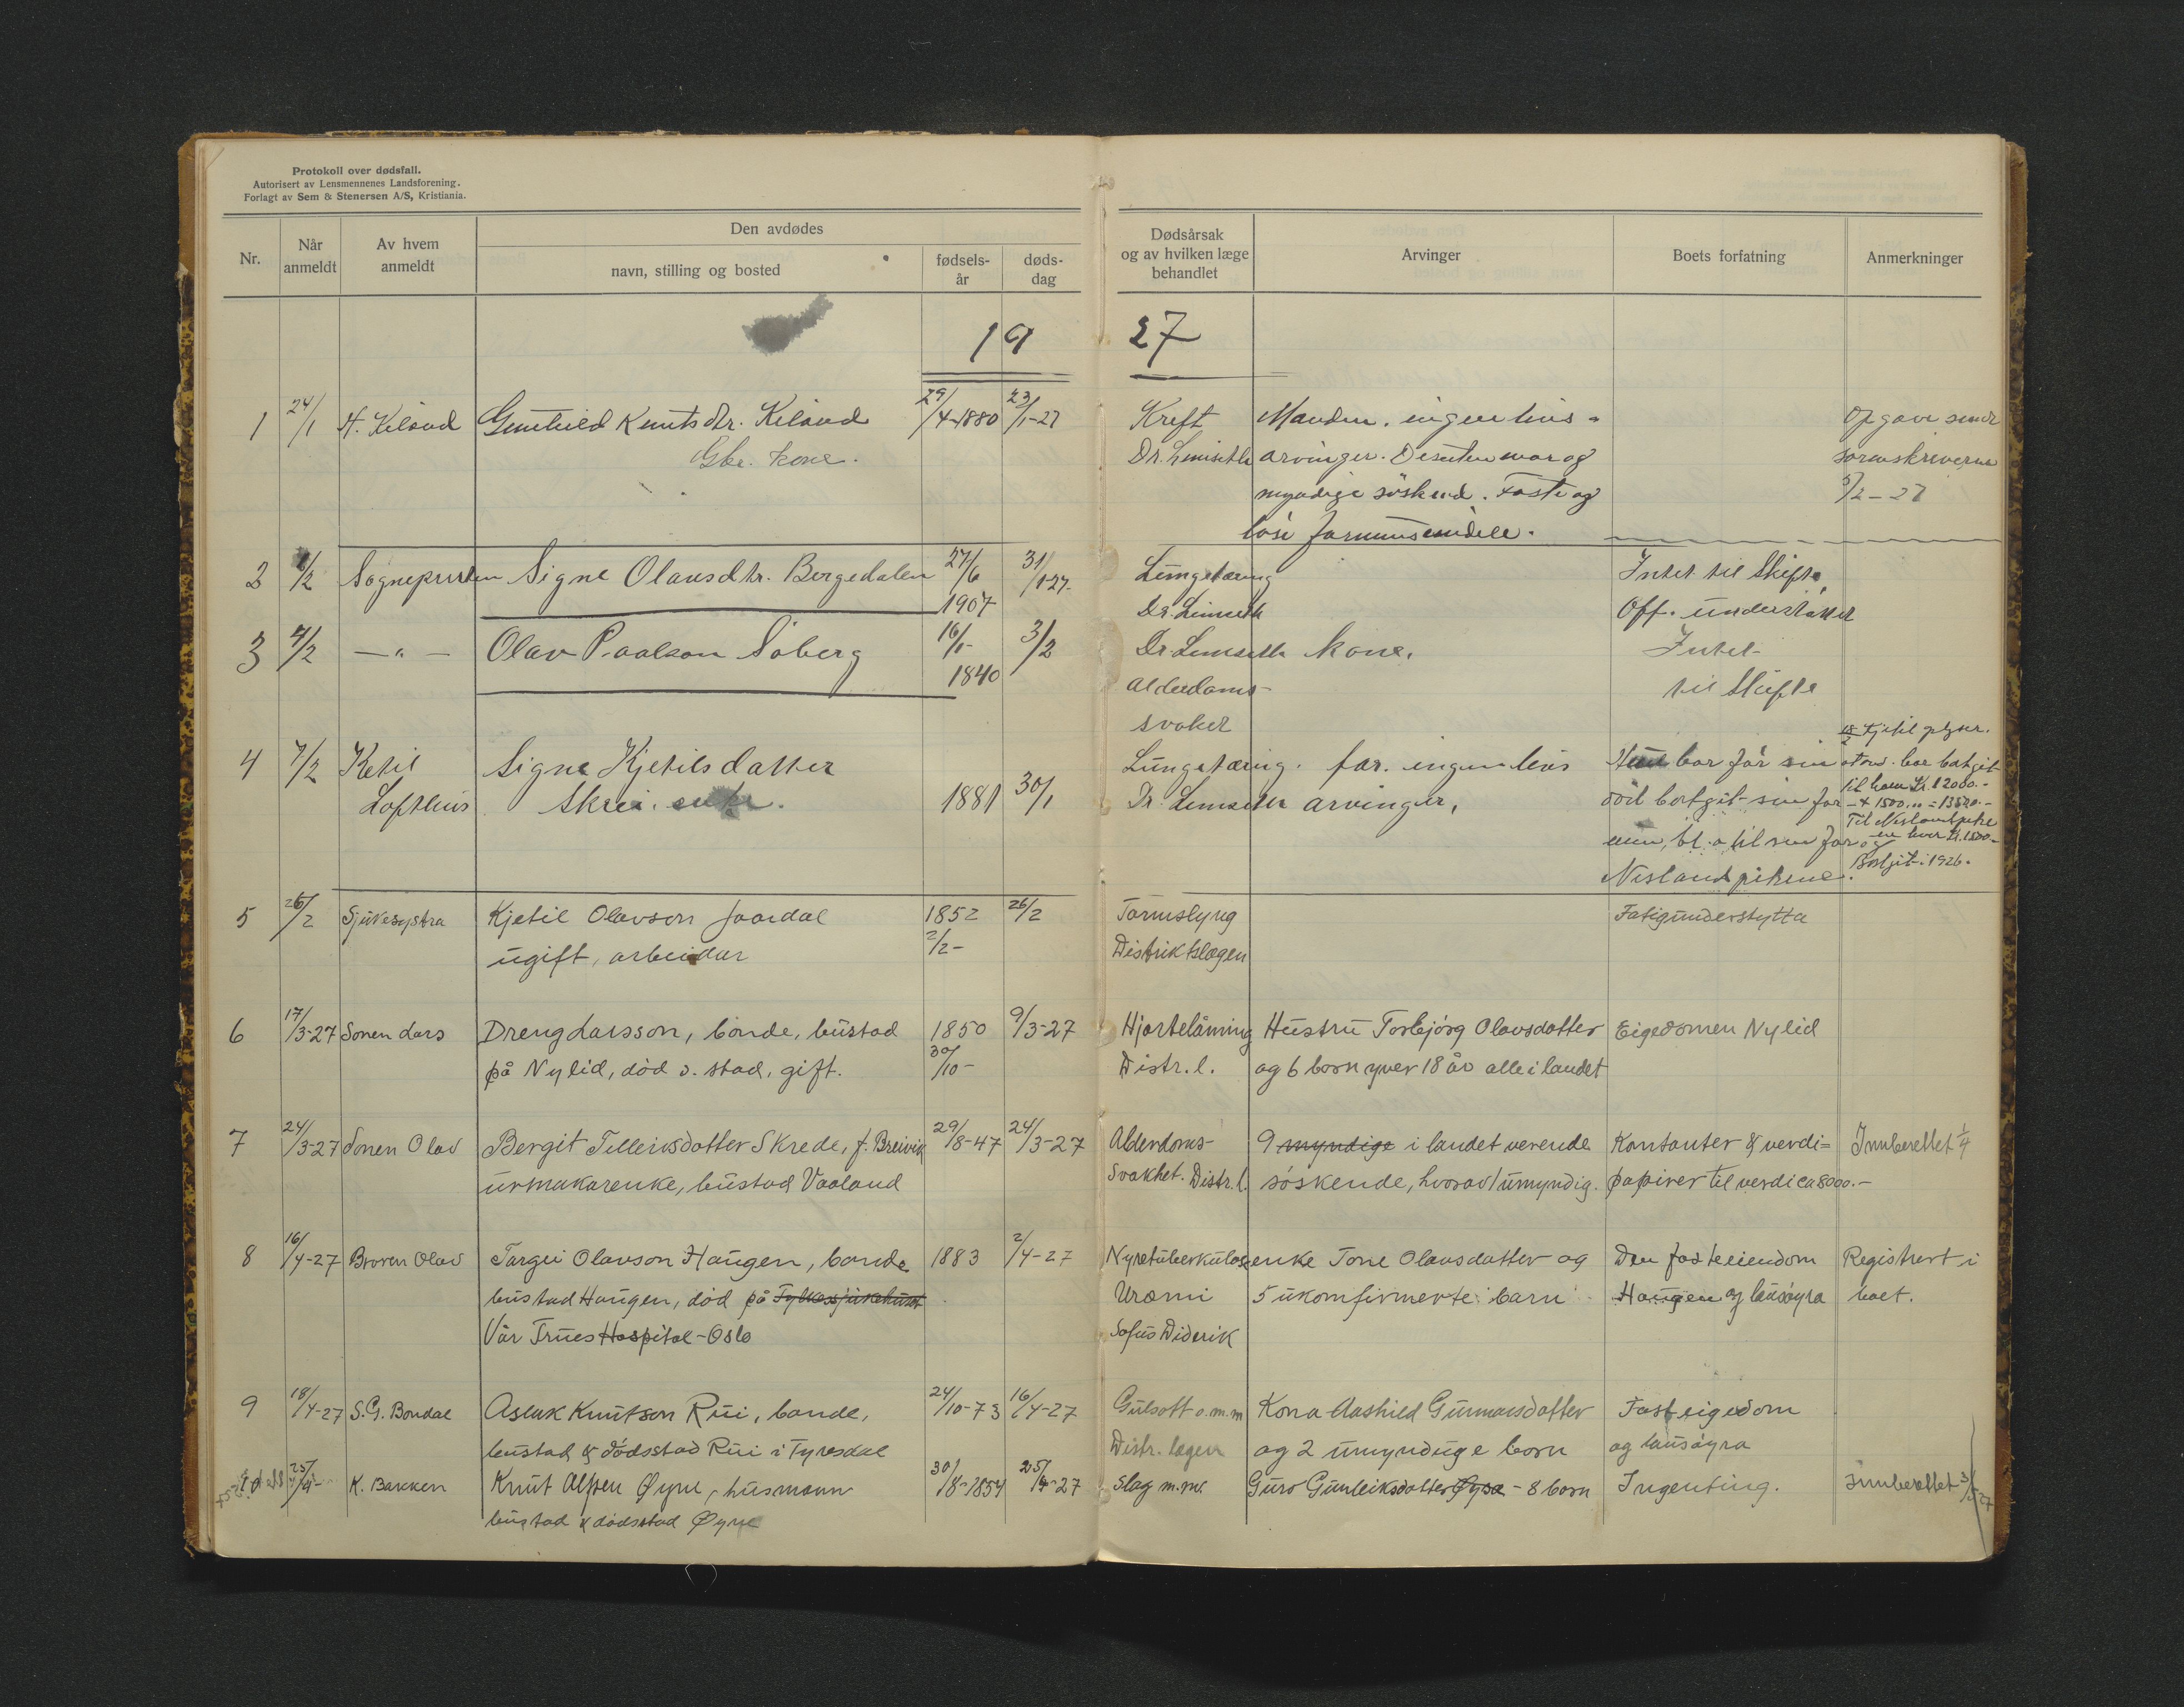 Protokoll over dødsfall.
Autorisert av Lensmennenes Landsforening.
Forlagt av Sem & Stenersen A/S, Kristiania.
Nr.
Når anmeldt
Av hvem anmeldt
Den avdødes
navn, stilling og bosted
fødsels-år
døds-dag
Dødsårsak og av hvilken læge behandlet
Arvinger
Boets forfatning
Anmerkninger
19 27
1 24/1 H. Kiland Gunhild Knutsdtr. Kiland 29/4-1880 23/1-27 Kreft Manden. ingen livs-
Gbr. kone. arvinger. Desuten mor og
myndige søskend. Faste og
løse formuesendele.
Opgave sendt
sorenskriveren
5/2-27
2 1/2 Sognepresten Signe Olavsdtr. Bergedalen 27/6 1907 31/1 27. Lungetæring Intet til Skifte.
Dr. Limseth Off. understøttet
3 4/2 — " — Olav Paalson Söberg 16/1- 1840 3/2 Dr Limseth kone. Intet
Alderdoms- til Skifte
svaket
4 7/2 Ketil Signe Kjetilsdatter Lungetæring. far. ingen livs
Lofthus Skrei. enke. 1881 30/1 Dr. Limseth arvinger.
Hun har før sin
död bortgit sin for
mue, bl. a til sin far og
Nesland pikene.
18/2 Kjetil
til ham Kr. 12000.-
+ 1500... = 13500.-
Bortgit i 1926.
5 26/2 Sjukesystra Kjetil Olavson Jaardal 1852 26/2 Tarmslyng Fatigunderstytta
ugift, arbeidar 2/2- Distriktslægen
6 17/3-27 Sonen Lars Dreng Larsson, bonde, bustad 1850 9/3-27 Hjartelåming Hustru Torbjörg Olavsdatter Eigedomen Nylid
på Nylid, död s. stad, gift. 30/10- Distr. l. og 6 born yver 18 år alle i landet
7 24/3-27 Sonen Olav Bergit Tellevsdatter Skrede, f. Breivik 29/8-47 24/3-27 Alderdoms- 9 myndige i landet verende Kontanter & verdi= Innberettet 1/4
urmakarenke, bustad Vaaland Svakhet. Distr. l. söskende, hvorav 1 umyndig. papirer til verdi ca 8000.-
8 16/4-27 Broren Olav Targei Olavson Haugen, bonde 1883 2/4-27 Nyretuberkulose enke Tone Olavsdatter og Den faste eiendom Registrert i
bustad Haugen, död på Fylkessjukehuset Uræmi 5 ukomfirmerte barn Haugen og lausöyra boet.
Vår Frues Hospital - Oslo Sofus Diderik
9 18/4-27 S. G. Bondal Aslak Knutson Rui, bonde, 24/10-73 16/4-27 Gulsott o.m.m Kona Aashild Gunnarsdatter Fast eigedom
bustad & dödsstad Rui i Tyresdal Distr. lægen og 2 umynduge born og lausöyra
25/4- K. Bakken Knut Øyne, husmann 30/8-1854 25/4-27 Slag m.m. Guro Gunleiksdatter Øyse - 8 born Ingenting. Innberettet 3/5 27
bustad & dödsstad Øyne